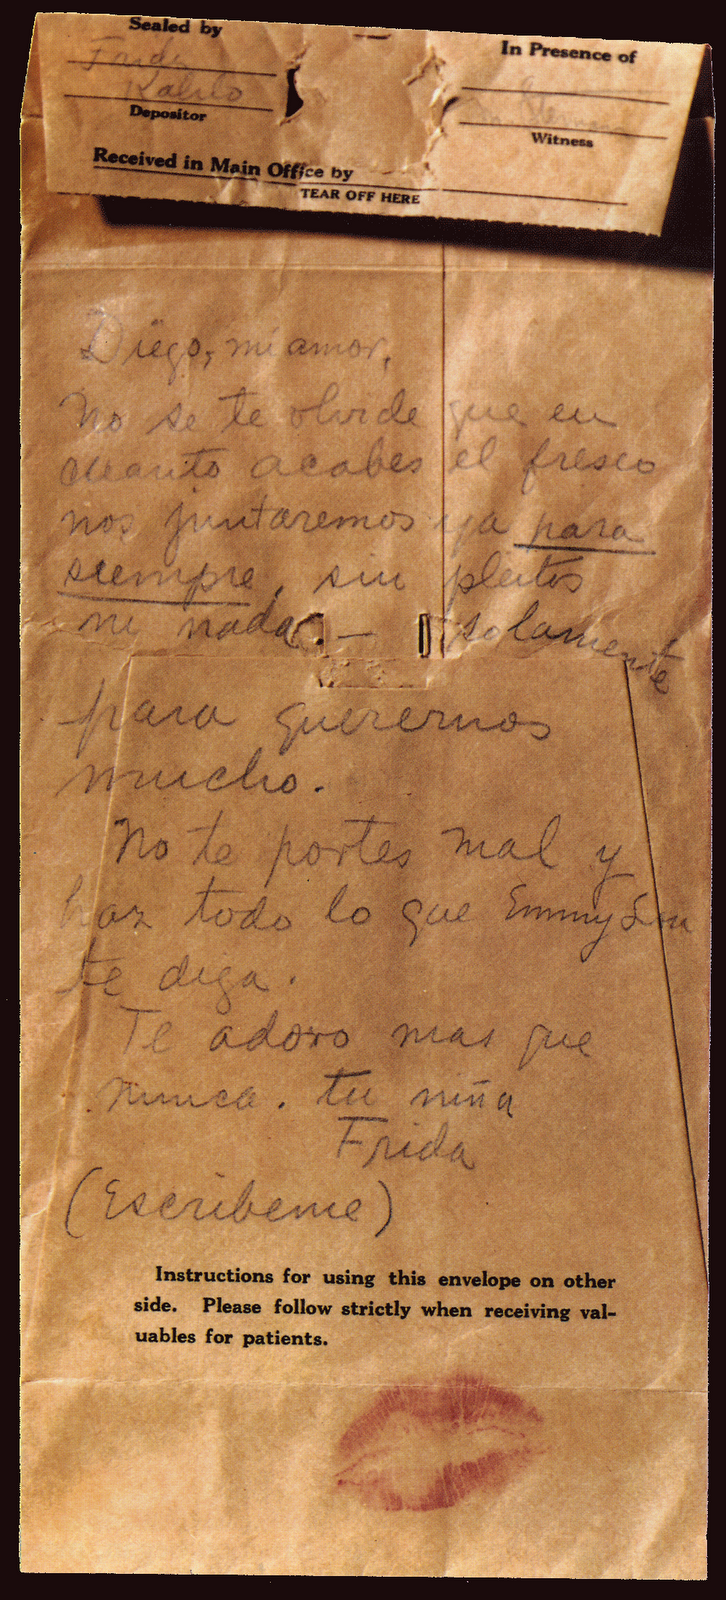 Sealed by
Frida
Kahlo
Depositor
In Presence of
Witness
Received in Main Office by
TEAR OFF HERE
Diego, mi amor,
No se te olvide que en
cuanto acabes el fresco
nos juntaremos ya para
siempre, sin pleitos
ni nada. — solamente
para querernos
mucho.
No te portes mal y
haz todo lo que Emmy Lou
te diga.
Te adoro mas que
nunca. tu niña
Frida
(Escribeme)
Instructions for using this envelope on other
side. Please follow strictly when receiving val-
uables for patients.